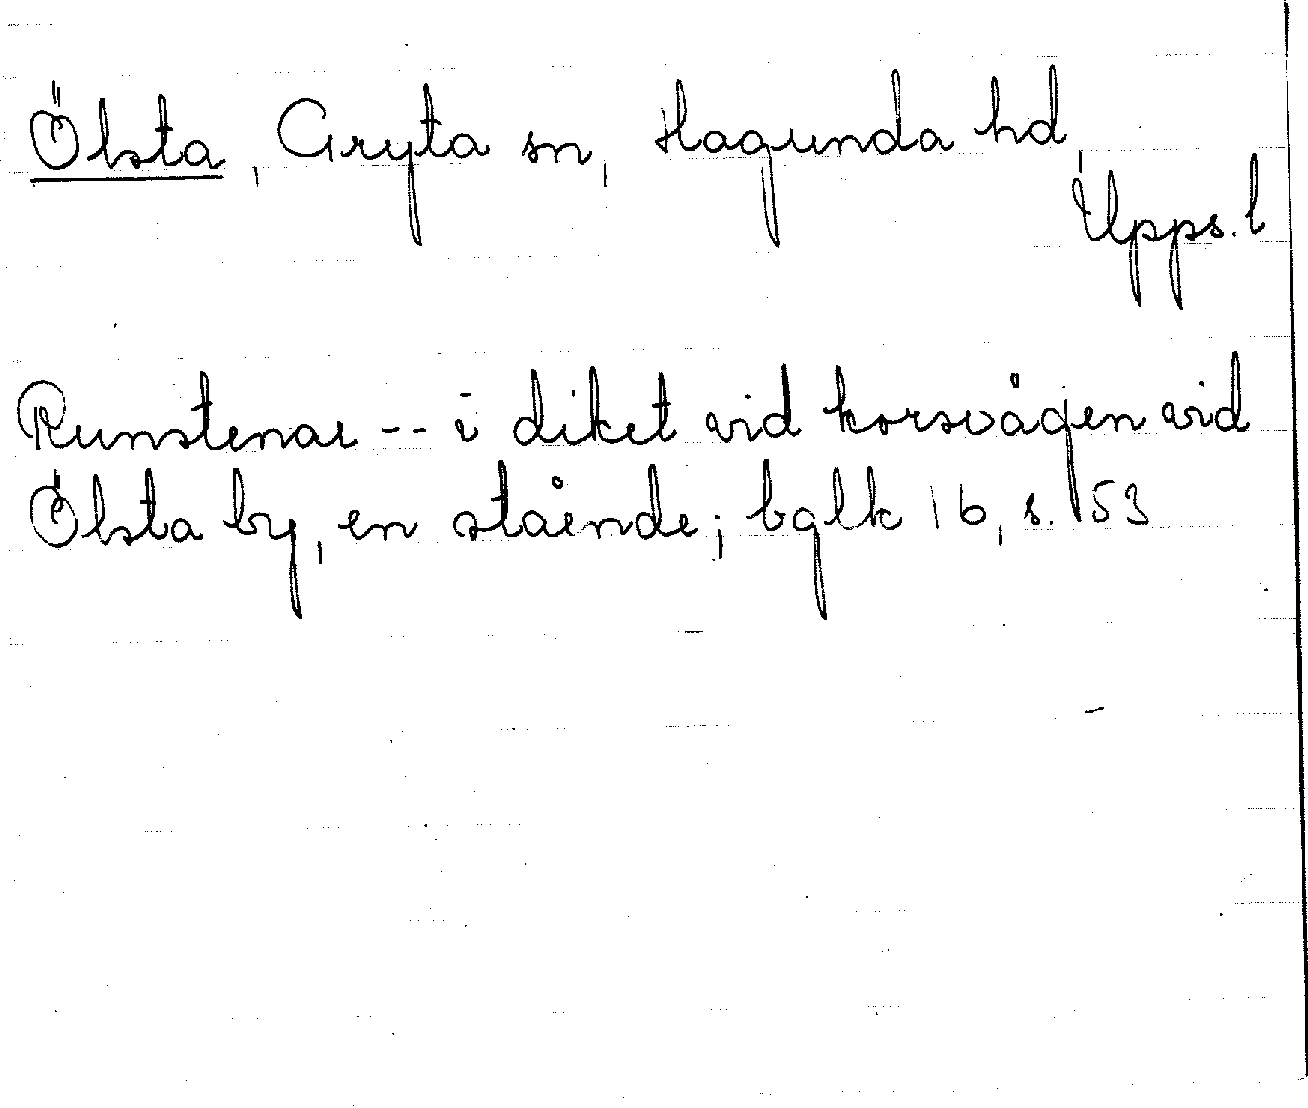 Ölsta, Gryta sn, Hagunda hd,
Upps. l
Runstenar -- i diket vid korsvägen vid
Ölsta by, en stående; bglk 16, s. 153